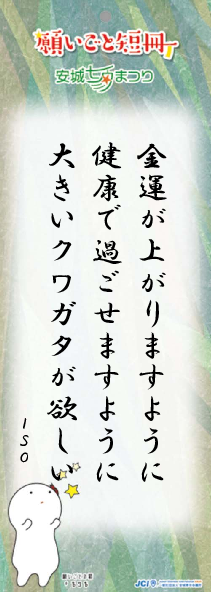 願いごと短冊
安城七夕まつり
金運が上がりますように
健康で過ごせますように
大きいクワガタが欲しい
ISO
JCI